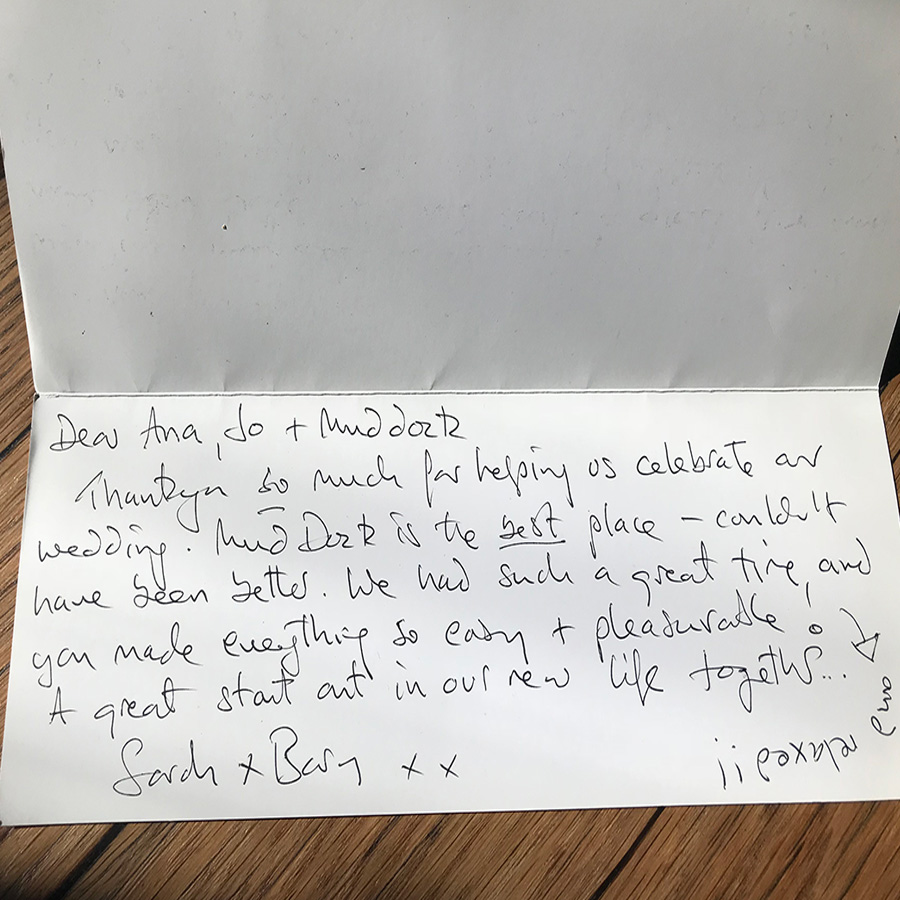 Dear Ana, Jo + Mud dock
Thankyou so much for helping us celebrate our
wedding. Mud Dock is the best place – couldn't
have been better. We had such a great time, and
you made everything so easy + pleasurable!
A great start out in our new life together...
relaxed!!
Sarah x Barry x x